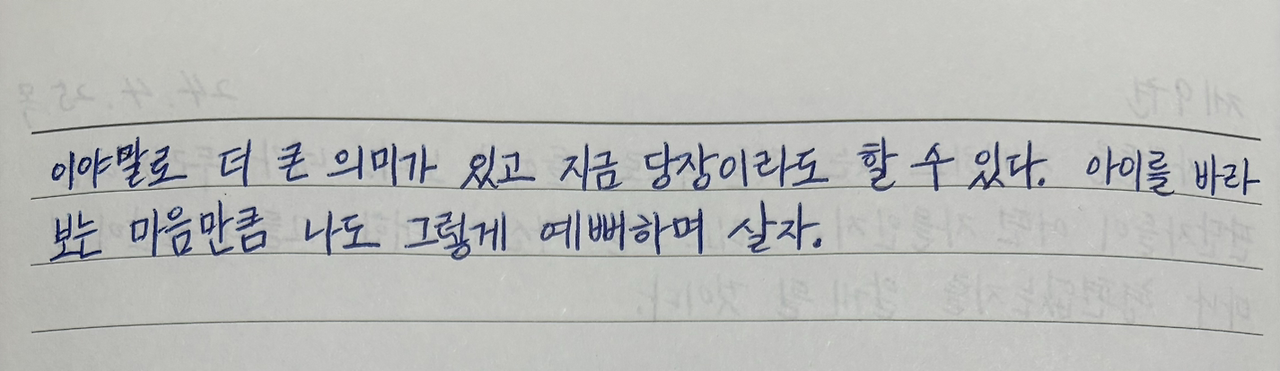 이야말로 더 큰 의미가 있고 지금 당장이라도 할 수 있다. 아이를 바라
보는 마음만큼 나도 그렇게 예뻐하며 살자.